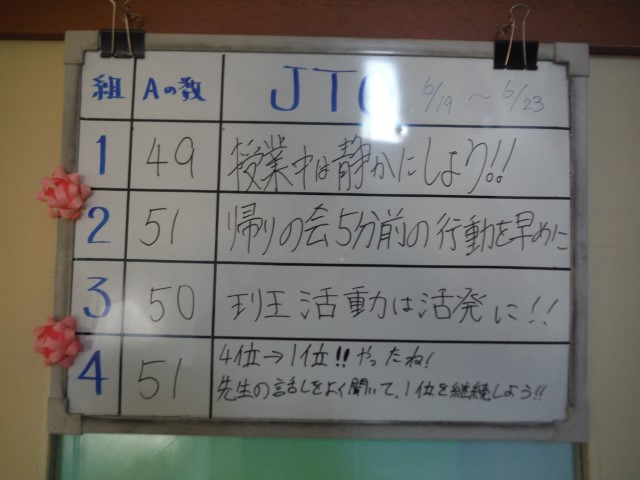 組 Aの数 JTO 6/19 ~ 6/23
1 49 授業中は静かにしよう!!
2 51 帰りの会5分前の行動を早めに
3 50 班活動は活発に!!
4 51 4位→1位!! やったね!
先生の話しをよく聞いて、1位を継続しよう!!